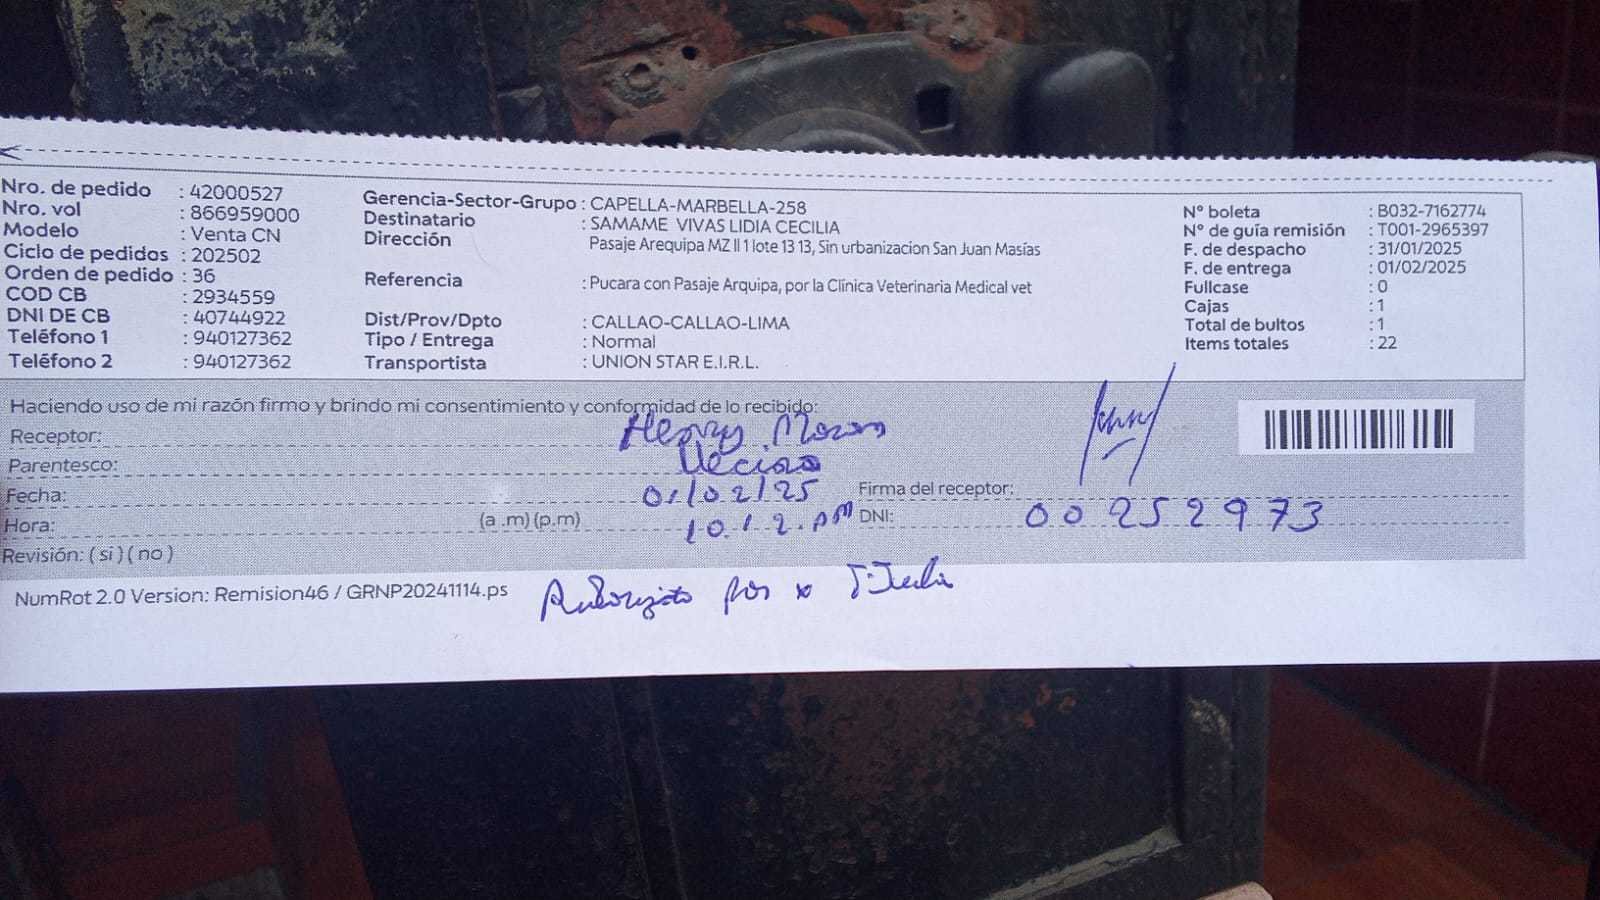 Nro. de pedido : 42000527
Nro. vol : 866959000
Modelo : Venta CN
Ciclo de pedidos : 202502
Orden de pedido : 36
COD CB : 2934559
DNI DE CB : 40744922
Teléfono 1 : 940127362
Teléfono 2 : 940127362
Gerencia-Sector-Grupo : CAPELLA-MARBELLA-258
Destinatario : SAMAME VIVAS LIDIA CECILIA
Dirección Pasaje Arequipa MZ ll 1 lote 13 13, Sin urbanizacion San Juan Masías
Referencia : Pucara con Pasaje Arquipa, por la Clínica Veterinaria Medical vet
Dist/Prov/Dpto : CALLAO-CALLAO-LIMA
Tipo / Entrega : Normal
Transportista : UNION STAR E.I.R.L.
N° boleta : B032-7162774
N° de guía remisión : T001-2965397
F. de despacho : 31/01/2025
F. de entrega : 01/02/2025
Fullcase : 0
Cajas : 1
Total de bultos : 1
Items totales : 22
Haciendo uso de mi razón firmo y brindo mi consentimiento y conformidad de lo recibido:
Receptor: Henry
Parentesco: Vecino
Fecha: 01/02/25 Firma del receptor:
Hora: (a .m) (p.m) 10.12.pm DNI: 00252973
Revisión: ( si ) ( no )
NumRot 2.0 Version: Remision46 / GRNP20241114.ps
por